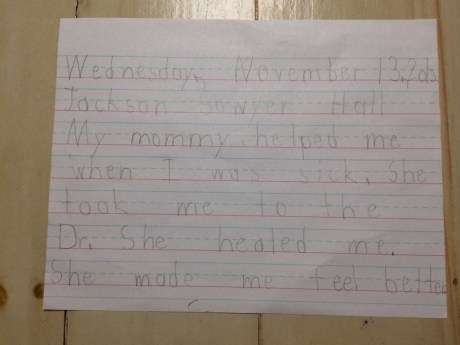 Wednesday, November 13,
Jackson Sawyer Hall
My mommy helped me
when I was sick. She
took me to the
Dr. She healed me.
She made me feel better